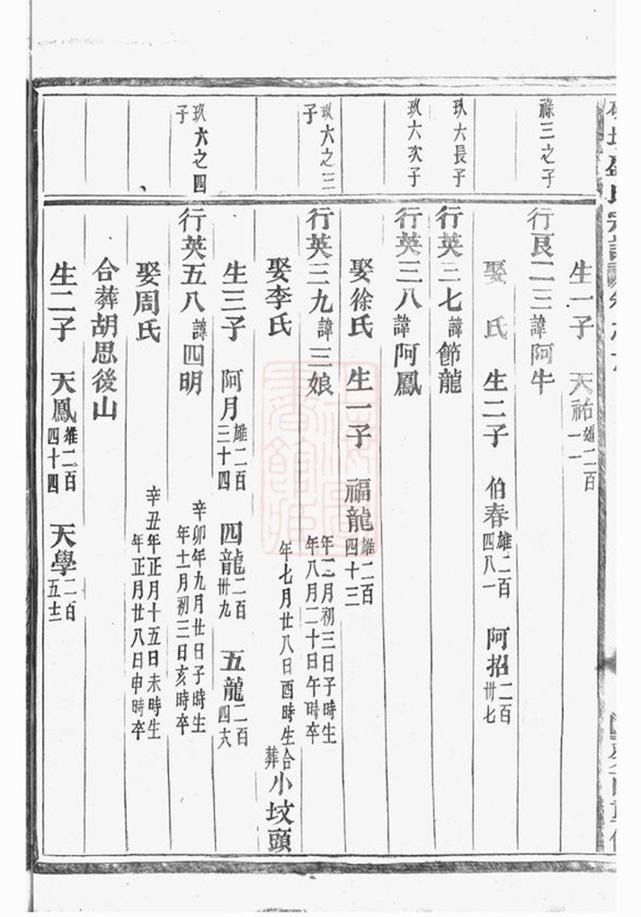 生一子 天祐 雄二百一一
祿三之子
行艮二三 諱阿牛
娶 氏 生二子 伯春 雄二百四八一 阿招 二百卅七
玖六長子
行英三七 諱節龍
玖六次子
行英三八 諱阿鳳
娶徐氏 生一子 福龍 雄二百四十三
玖六之三子
行英三九 諱三娘 年二月初三日子時生 年八月二十日午時卒
娶李氏 年七月廿八日酉時生 合葬小坟頭
生三子 阿月 雄二百三十四 四龍 二百卅九 五龍 二百四六
玖六之四子
行英五八 諱四明 辛卯年九月廿日子時生 年十一月初三日亥時卒
娶周氏 辛丑年正月十五日未時生 年正月廿八日申時卒
合葬胡思後山
生二子 天鳳 雄二百四十四 天學 二百五十二